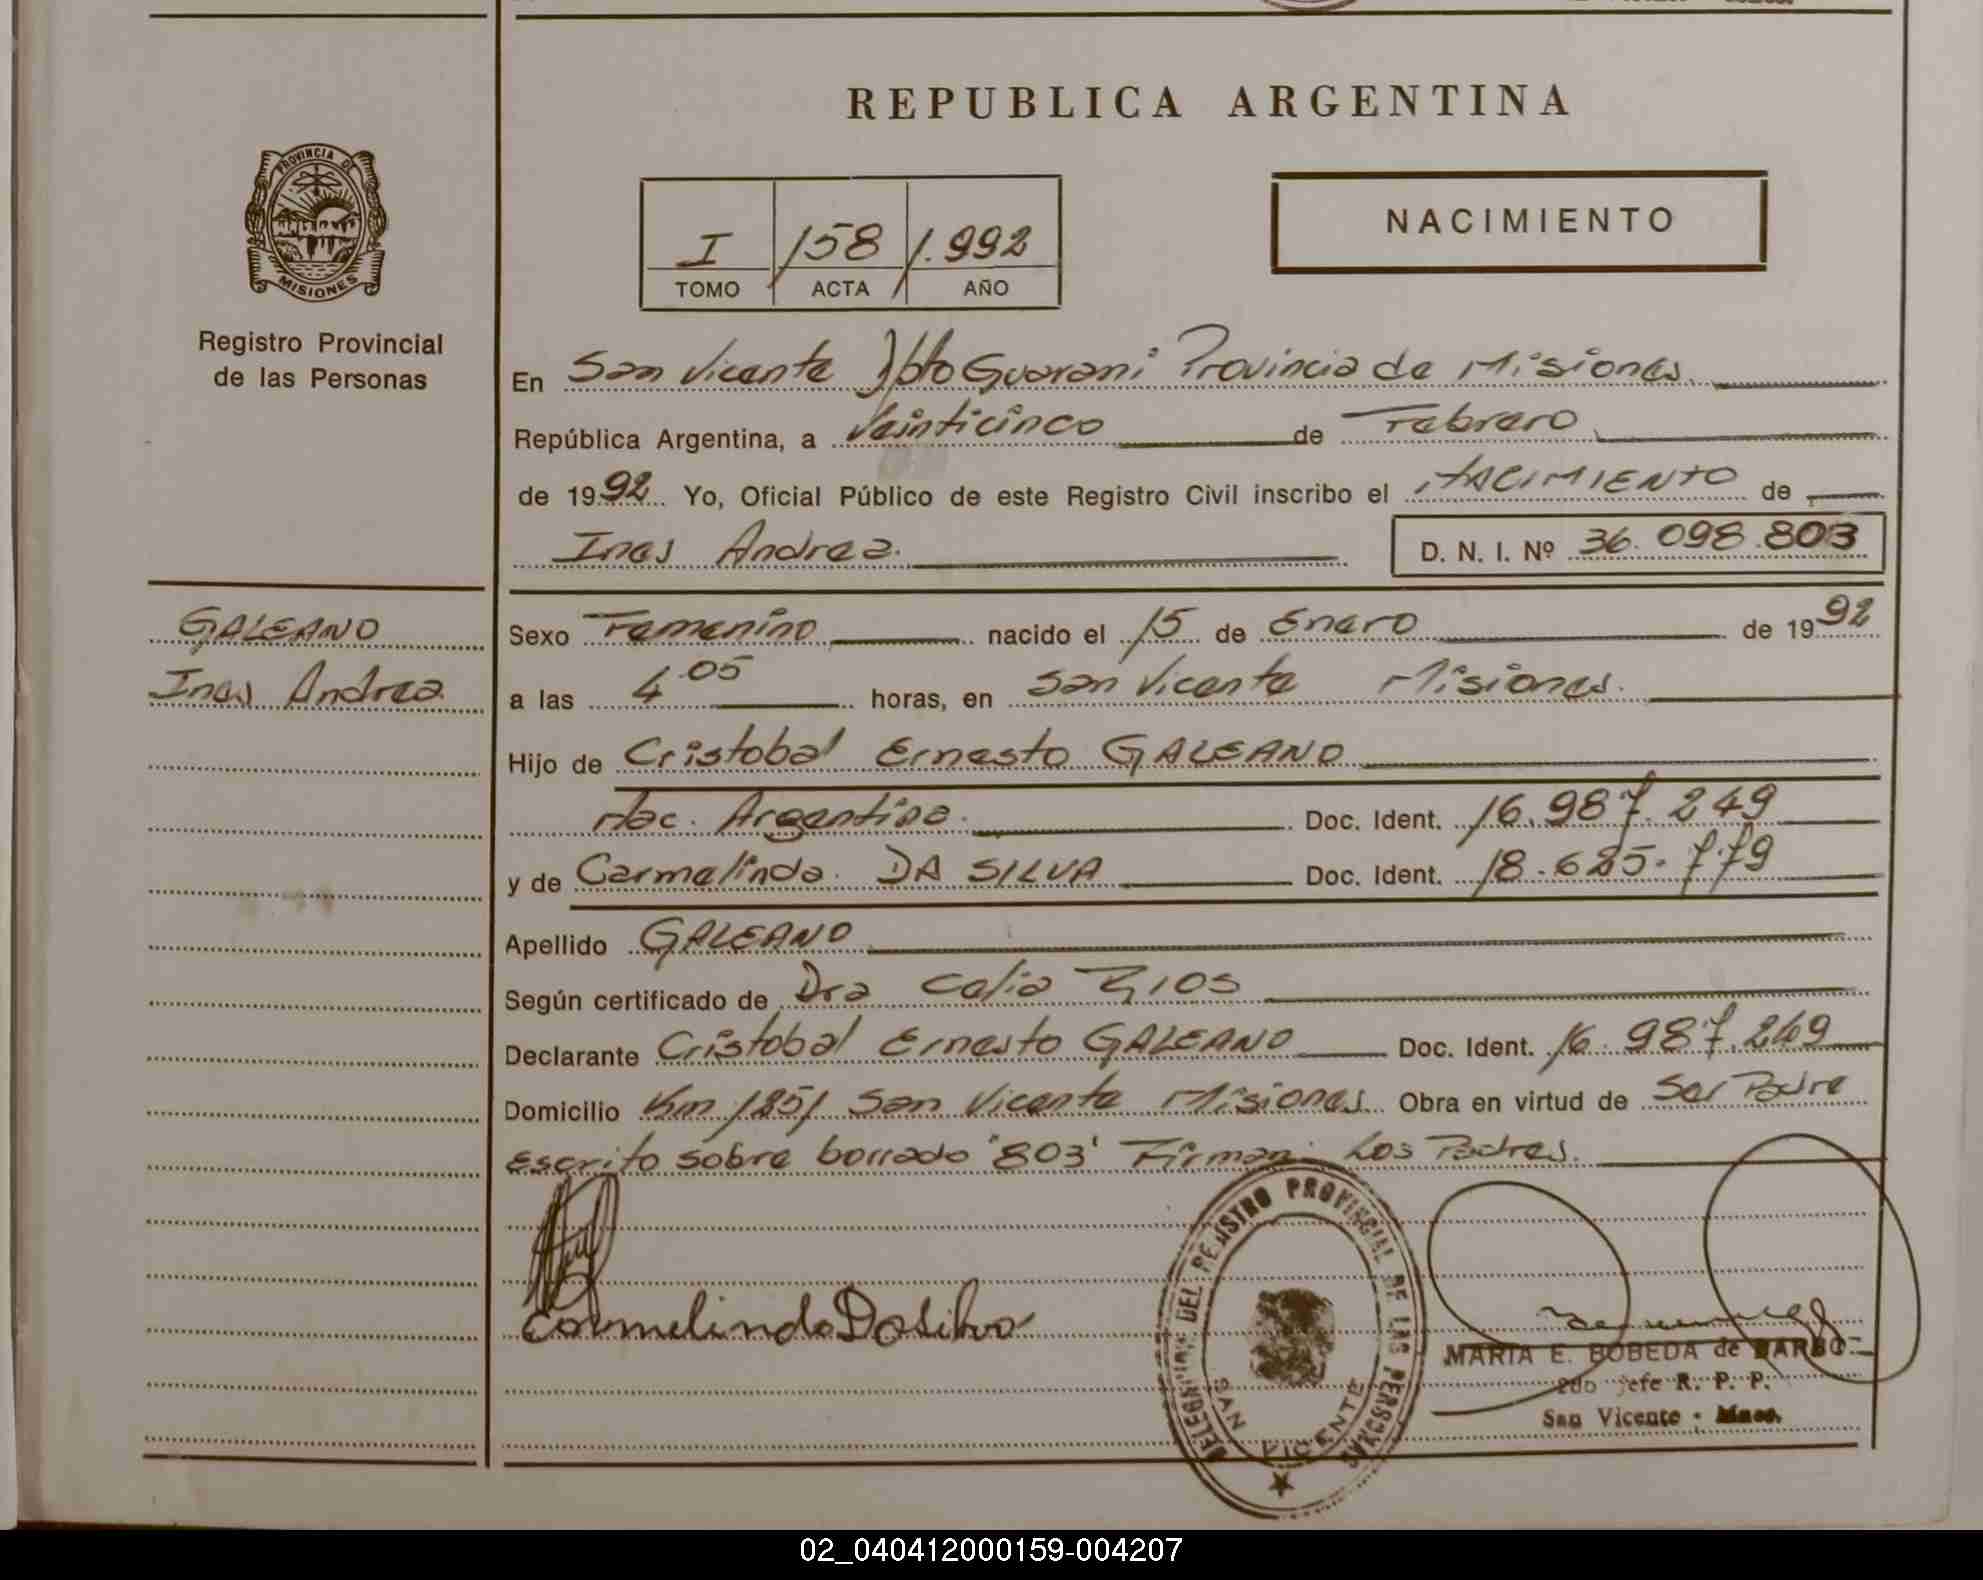 REPUBLICA ARGENTINA
PROVINCIA DE
MISIONES
Registro Provincial
de las Personas
NACIMIENTO
I 158 1.992
TOMO ACTA AÑO
En San Vicente Dpto Guarani Provincia de Misiones
República Argentina, a Veinticinco de Febrero
de 1992 Yo, Oficial Público de este Registro Civil inscribo el NACIMIENTO de
Ines Andrea. D. N. I. Nº 36.098.803
GALEANO
Ines Andrea.
Sexo Femenino nacido el 15 de Enero de 1992
a las 4.05 horas, en San Vicente Misiones.
Hijo de Cristobal Ernesto GALEANO
Nac. Argentina. Doc. Ident. 16.987.249
y de Carmelinda. DA SILVA Doc. Ident. 18.685.779
Apellido GALEANO
Según certificado de Dra Celia RIOS
Declarante Cristobal Ernesto GALEANO Doc. Ident. 16.987.249
Domicilio Km 1251 San Vicente Misiones. Obra en virtud de Ser Padre
escrito sobre borrado "803" Firman: Los Padres.
Carmelinda Da Silva
DELEGACION DEL REGISTRO PROVINCIAL DE LAS PERSONAS
SAN VICENTE
MARIA E. BOBEDA de
2do Jefe R. P. P.
San Vicente - Mnes.
02_040412000159-004207